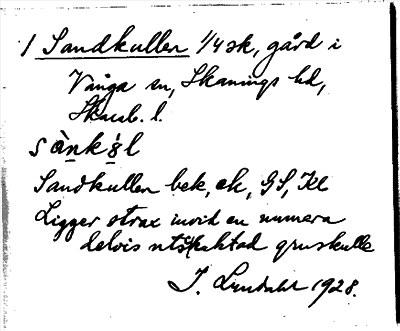 1 Sandkullen 1/4 sk, gård i
Vånga sn, Skånings hd,
Skarab. l.
sànkl
Sandkullen bek, ek, GS, Kl
Ligger strax invid en numera
delvis utschaktad gruskulle
I. Lundahl 1928.